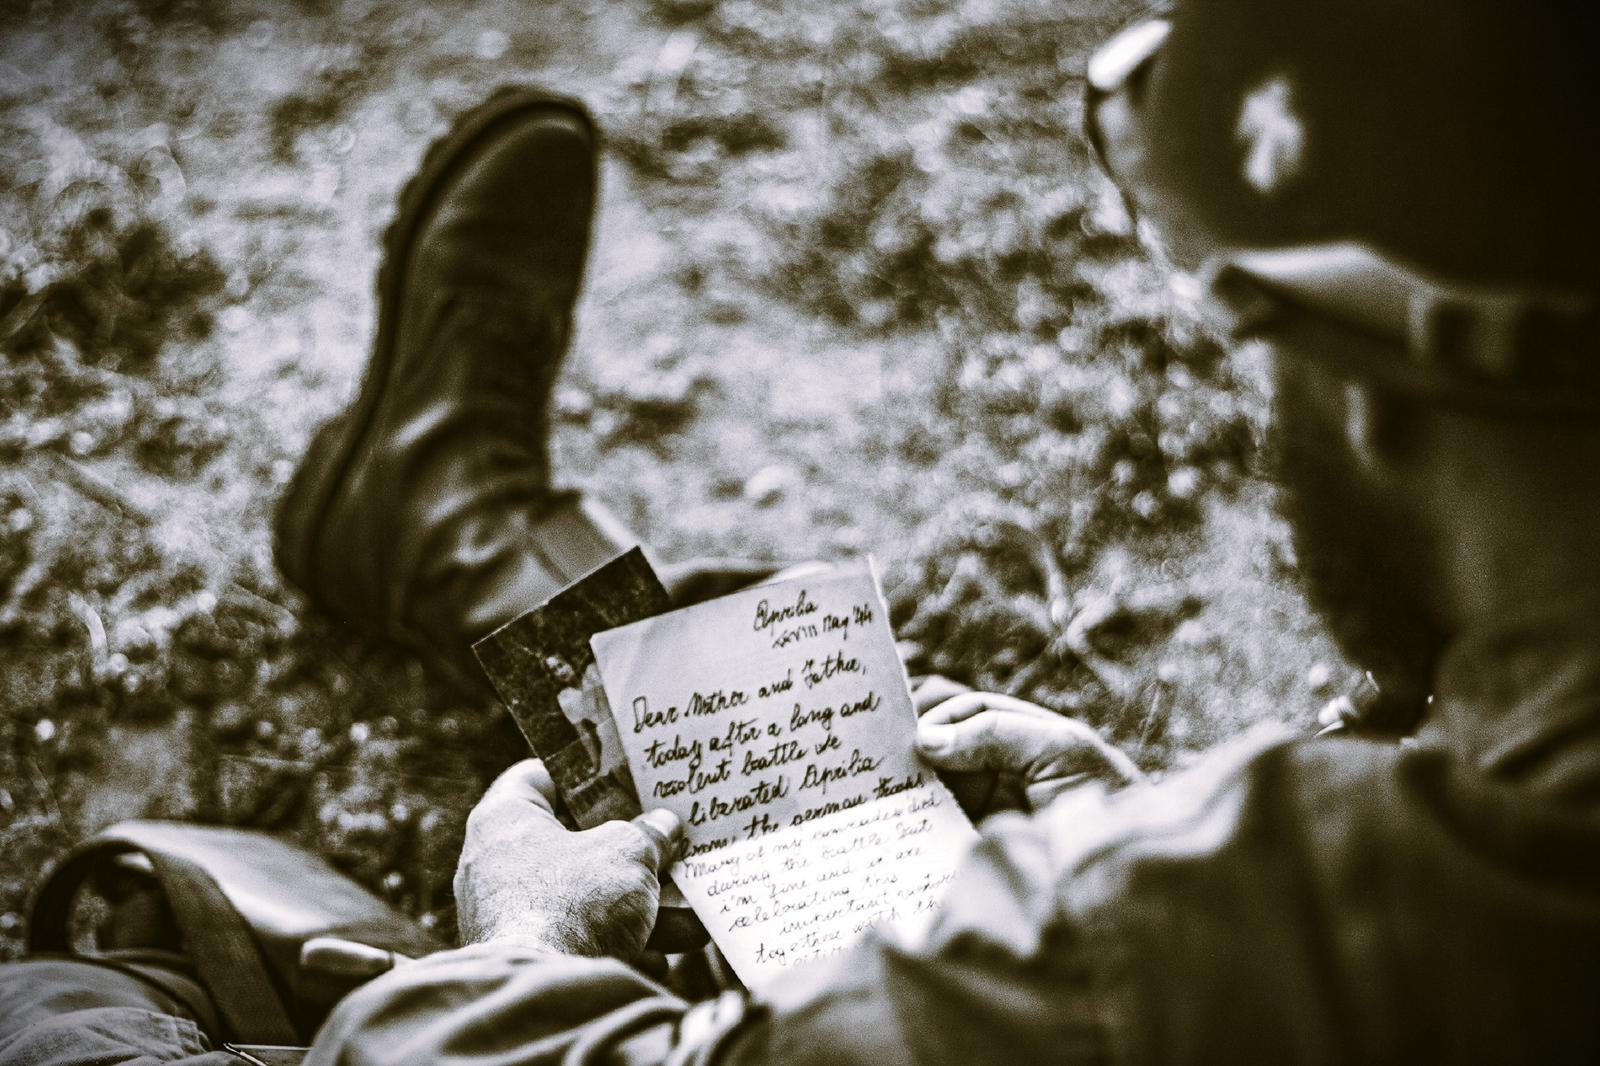 Aprilia
XXVIII May '44
Dear Mother and Father,
today after a long and
violent battle we
liberated Aprilia
from the german troops
Many of my comrades died
during the battle but
i'm fine and we are
celebrating this
important
together with the